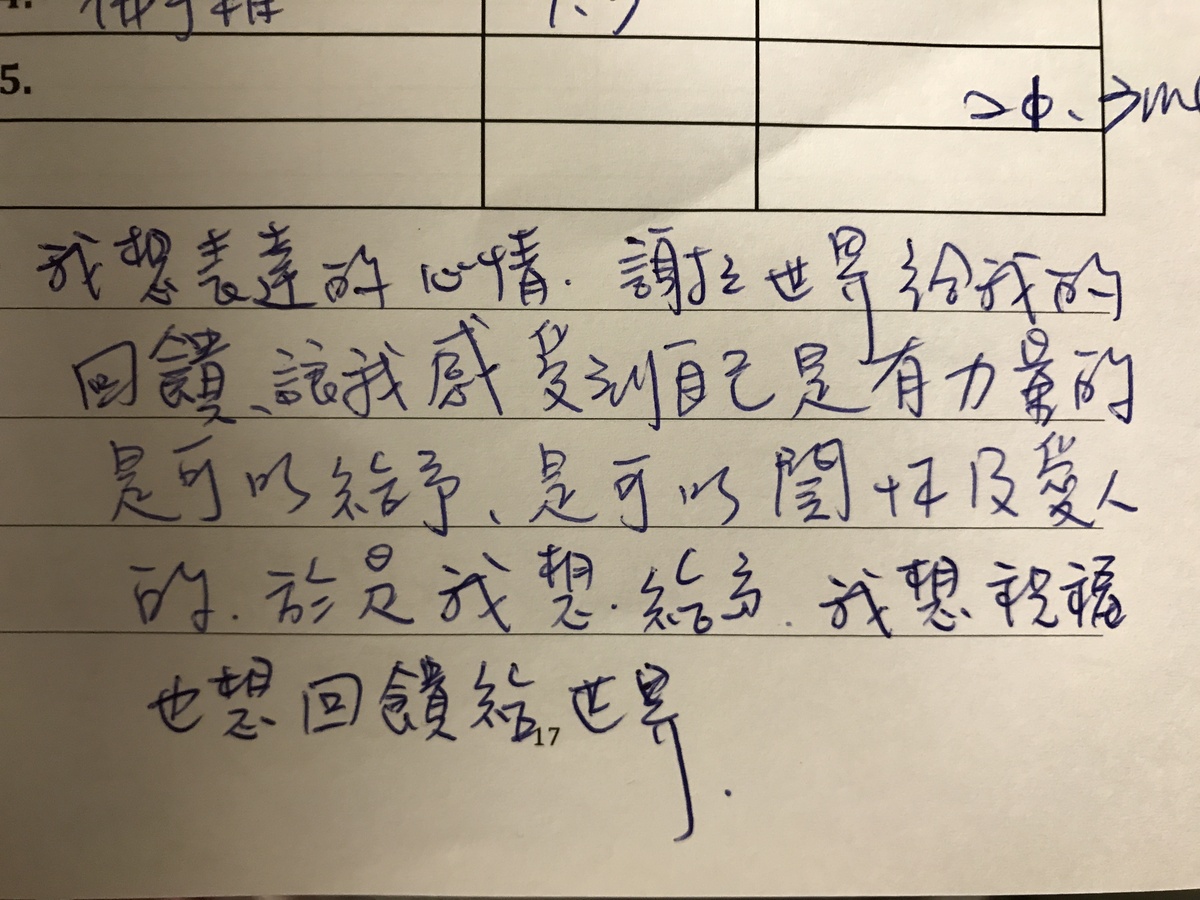 4. 佛手柑
5.
我想表達的心情. 謝於世界給我的
回饋、讓我感受到自己是有力量的
是可以給予、是可以關懷及愛人
的. 於是我想.給予. 我想祝福
也想回饋給世界.
17